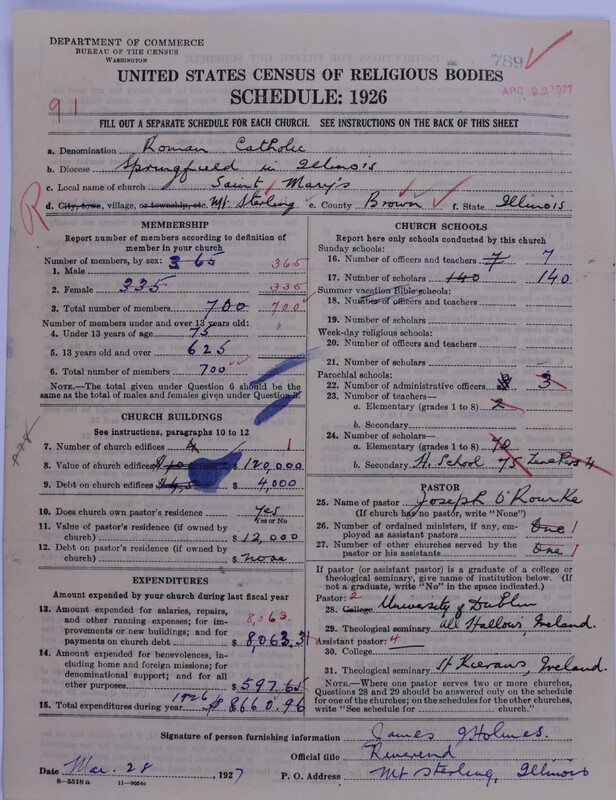 DEPARTMENT OF COMMERCE
BUREAU OF THE CENSUS
WASHINGTON
789
UNITED STATES CENSUS OF RELIGIOUS BODIES
APR 22 1927
SCHEDULE: 1926
91
FILL OUT A SEPARATE SCHEDULE FOR EACH CHURCH. SEE INSTRUCTIONS ON THE BACK OF THIS SHEET
a. Denomination Roman Catholic
b. Diocese Springfield in Illinois
c. Local name of church Saint Mary's
d. City, town, village, or township, etc. Mt. Sterling e. County Brown f. State Illinois
R
MEMBERSHIP
Report number of members according to definition of member in your church
Number of members, by sex:
1. Male 365 365
2. Female 335 335
3. Total number of members 700 700
Number of members under and over 13 years old:
4. Under 13 years of age 75
5. 13 years old and over 625
6. Total number of members 700
NOTE.—The total given under Question 6 should be the same as the total of males and females given under Question 3.
CHURCH BUILDINGS
See instructions, paragraphs 10 to 12
7. Number of church edifices 1
8. Value of church edifices $ 120,000
9. Debt on church edifices $ 4,000
10. Does church own pastor's residence Yes
Yes or No
11. Value of pastor's residence (if owned by church) $ 12,000
12. Debt on pastor's residence (if owned by church) $ none
EXPENDITURES
Amount expended by your church during last fiscal year
13. Amount expended for salaries, repairs, and other running expenses; for improvements or new buildings; and for payments on church debt 8,063 $ 8,063.31
14. Amount expended for benevolences, including home and foreign missions; for denominational support; and for all other purposes $ 597.65
15. Total expenditures during year 1926 $ 8660.96
CHURCH SCHOOLS
Report here only schools conducted by this church
Sunday schools:
16. Number of officers and teachers 7 7
17. Number of scholars 140 140
Summer vacation Bible schools:
18. Number of officers and teachers
19. Number of scholars
Week-day religious schools:
20. Number of officers and teachers
21. Number of scholars
Parochial schools:
22. Number of administrative officers 3
23. Number of teachers—
a. Elementary (grades 1 to 8) 2
b. Secondary
24. Number of scholars—
a. Elementary (grades 1 to 8) 70
b. Secondary H. School 75
PASTOR
25. Name of pastor Joseph O'Rourke
(If church has no pastor, write "None")
26. Number of ordained ministers, if any, employed as assistant pastors One 1
27. Number of other churches served by the pastor or his assistants One 1
If pastor (or assistant pastor) is a graduate of a college or theological seminary, give name of institution below. (If not a graduate, write "No" in the space indicated.)
Pastor: 2
28. College University of Dublin
29. Theological seminary All Hallows, Ireland.
Assistant pastor: 4
30. College
31. Theological seminary St Kierans, Ireland.
NOTE.—Where one pastor serves two or more churches, Questions 28 and 29 should be answered only on the schedule for one of the churches; on the schedules for the other churches, write "See schedule for church."
Signature of person furnishing information James J Holmes.
Official title Reverend
Date Mar. 28, 1927 P. O. Address Mt Sterling, Illinois
8—5518 a